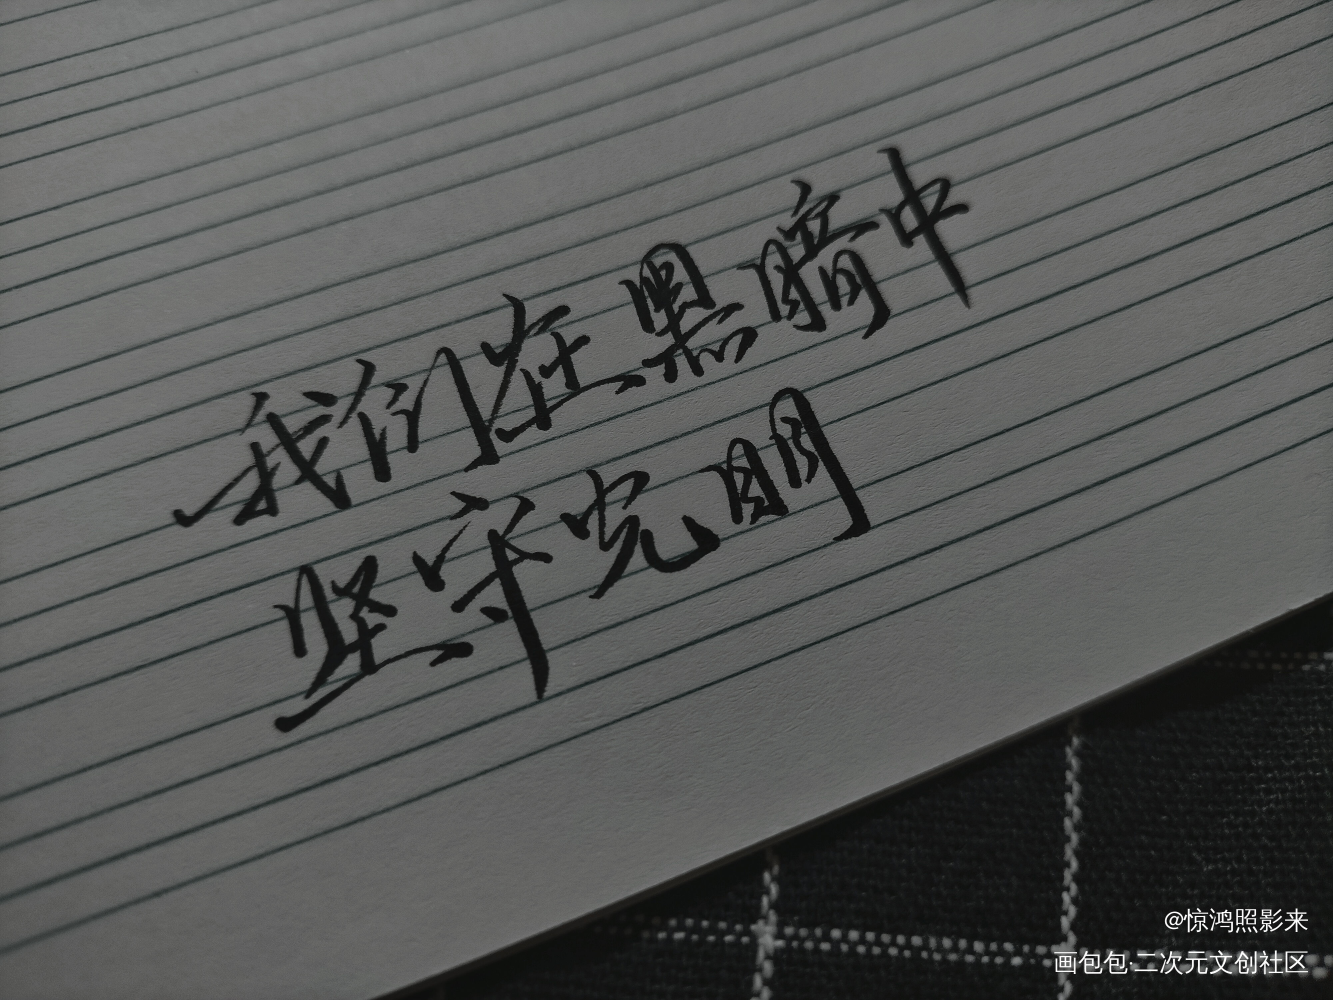 我们在黑暗中
坚守光明
@惊鸿照影来
画包包·二次元文创社区